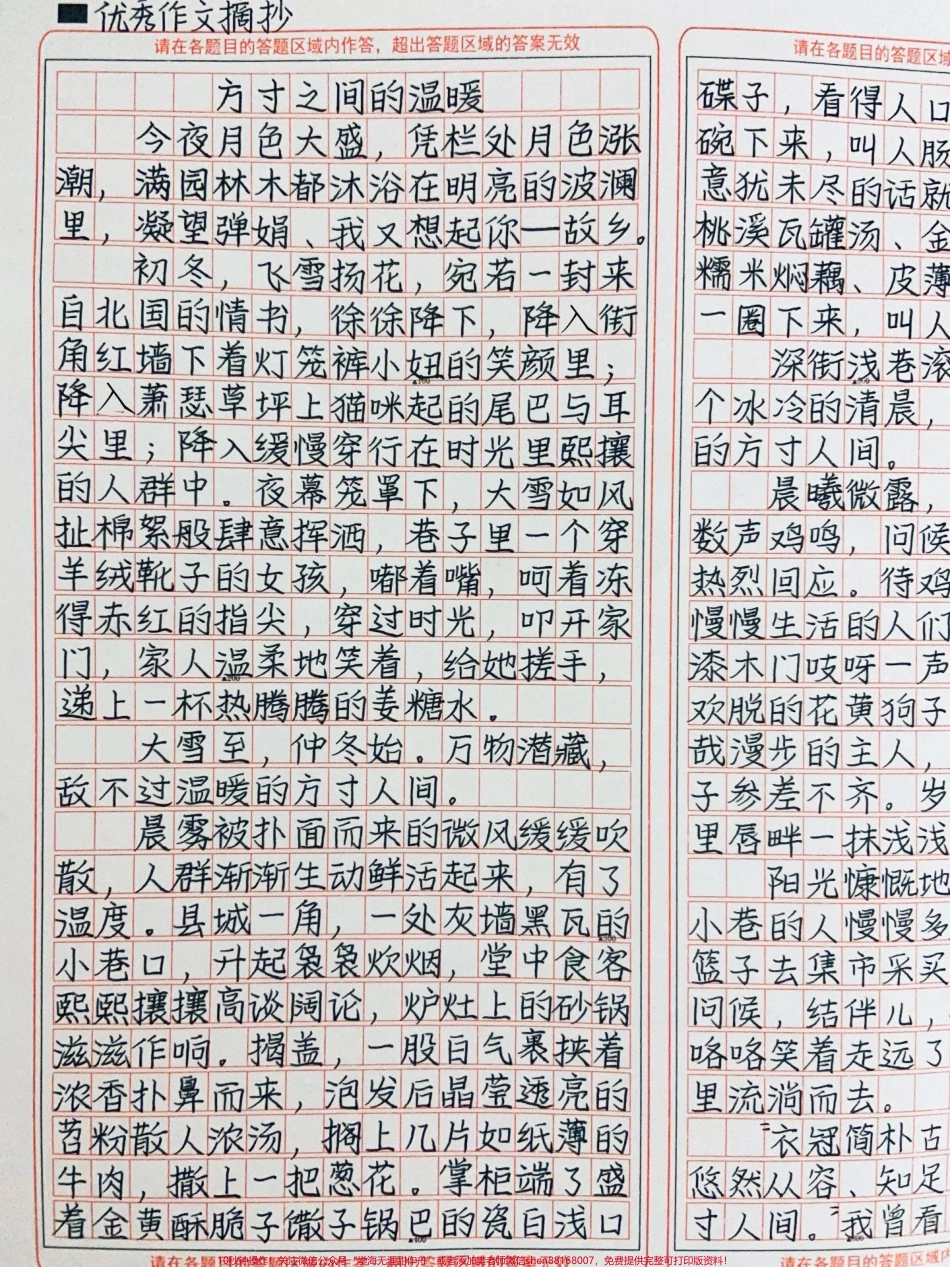 ■优秀作文摘抄
请在各题目的答题区域内作答，超出答题区域的答案无效
方寸之间的温暖
今夜月色大盛，凭栏处月色涨
潮，满园林木都沐浴在明亮的波澜
里，凝望弹娟、我又想起你一故乡。
初冬，飞雪扬花，宛若一封来
自北国的情书，徐徐降下，降入街
角红墙下着灯笼裤小妞的笑颜里；
▲100
降入萧瑟草坪上猫咪起的尾巴与耳
尖里；降入缓慢穿行在时光里熙攘
的人群中。夜幕笼罩下，大雪如风
扯棉絮般肆意挥洒，巷子里一个穿
羊绒靴子的女孩，嘟着嘴，呵着冻
得赤红的指尖，穿过时光，叩开家
门，家人温柔地笑着，给她搓手，
▲200
递上一杯热腾腾的姜糖水。
大雪至，仲冬始。万物潜藏，
敌不过温暖的方寸人间。
晨雾被扑面而来的微风缓缓吹
散，人群渐渐生动鲜活起来，有了
温度。县城一角，一处灰墙黑瓦的
▲300
小巷口，升起袅袅炊烟，堂中食客
熙熙攘攘高谈阔论，炉灶上的砂锅
滋滋作响。揭盖，一股白气裹挟着
浓香扑鼻而来，泡发后晶莹透亮的
苕粉散入浓汤，搁上几片如纸薄的
牛肉，撒上一把葱花。掌柜端了盛
着金黄酥脆子馓子锅巴的瓷白浅口
▲400
请在各题目的答题区域内作答
请在各题目的答题区域
碟子，看得人口
碗下来，叫人肠
意犹未尽的话就
桃溪瓦罐汤、金
糯米焖藕、皮薄
一圈下来，叫人
深街浅巷滚
个冰冷的清晨，
的方寸人间。
晨曦微露，
数声鸡鸣，问候
热烈回应。待鸡
慢慢生活的人们
漆木门吱呀一声
欢脱的花黄狗子
哉漫步的主人，
子参差不齐。岁
里唇畔一抹浅浅
阳光慷慨地
小巷的人慢慢多
篮子去集市采买
问候，结伴儿，
咯咯笑着走远了
里流淌而去。
衣冠简朴古
悠然从容、知足
寸人间。我曾看
请在各题目的答题区域